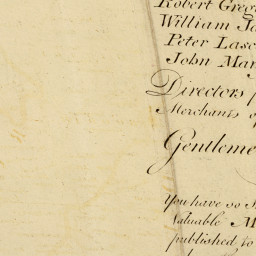 Robert Greg
William Ja
Peter Lasc
John Mar
Directors f
Merchants of
Gentleme
You have so
Valuable M
published to